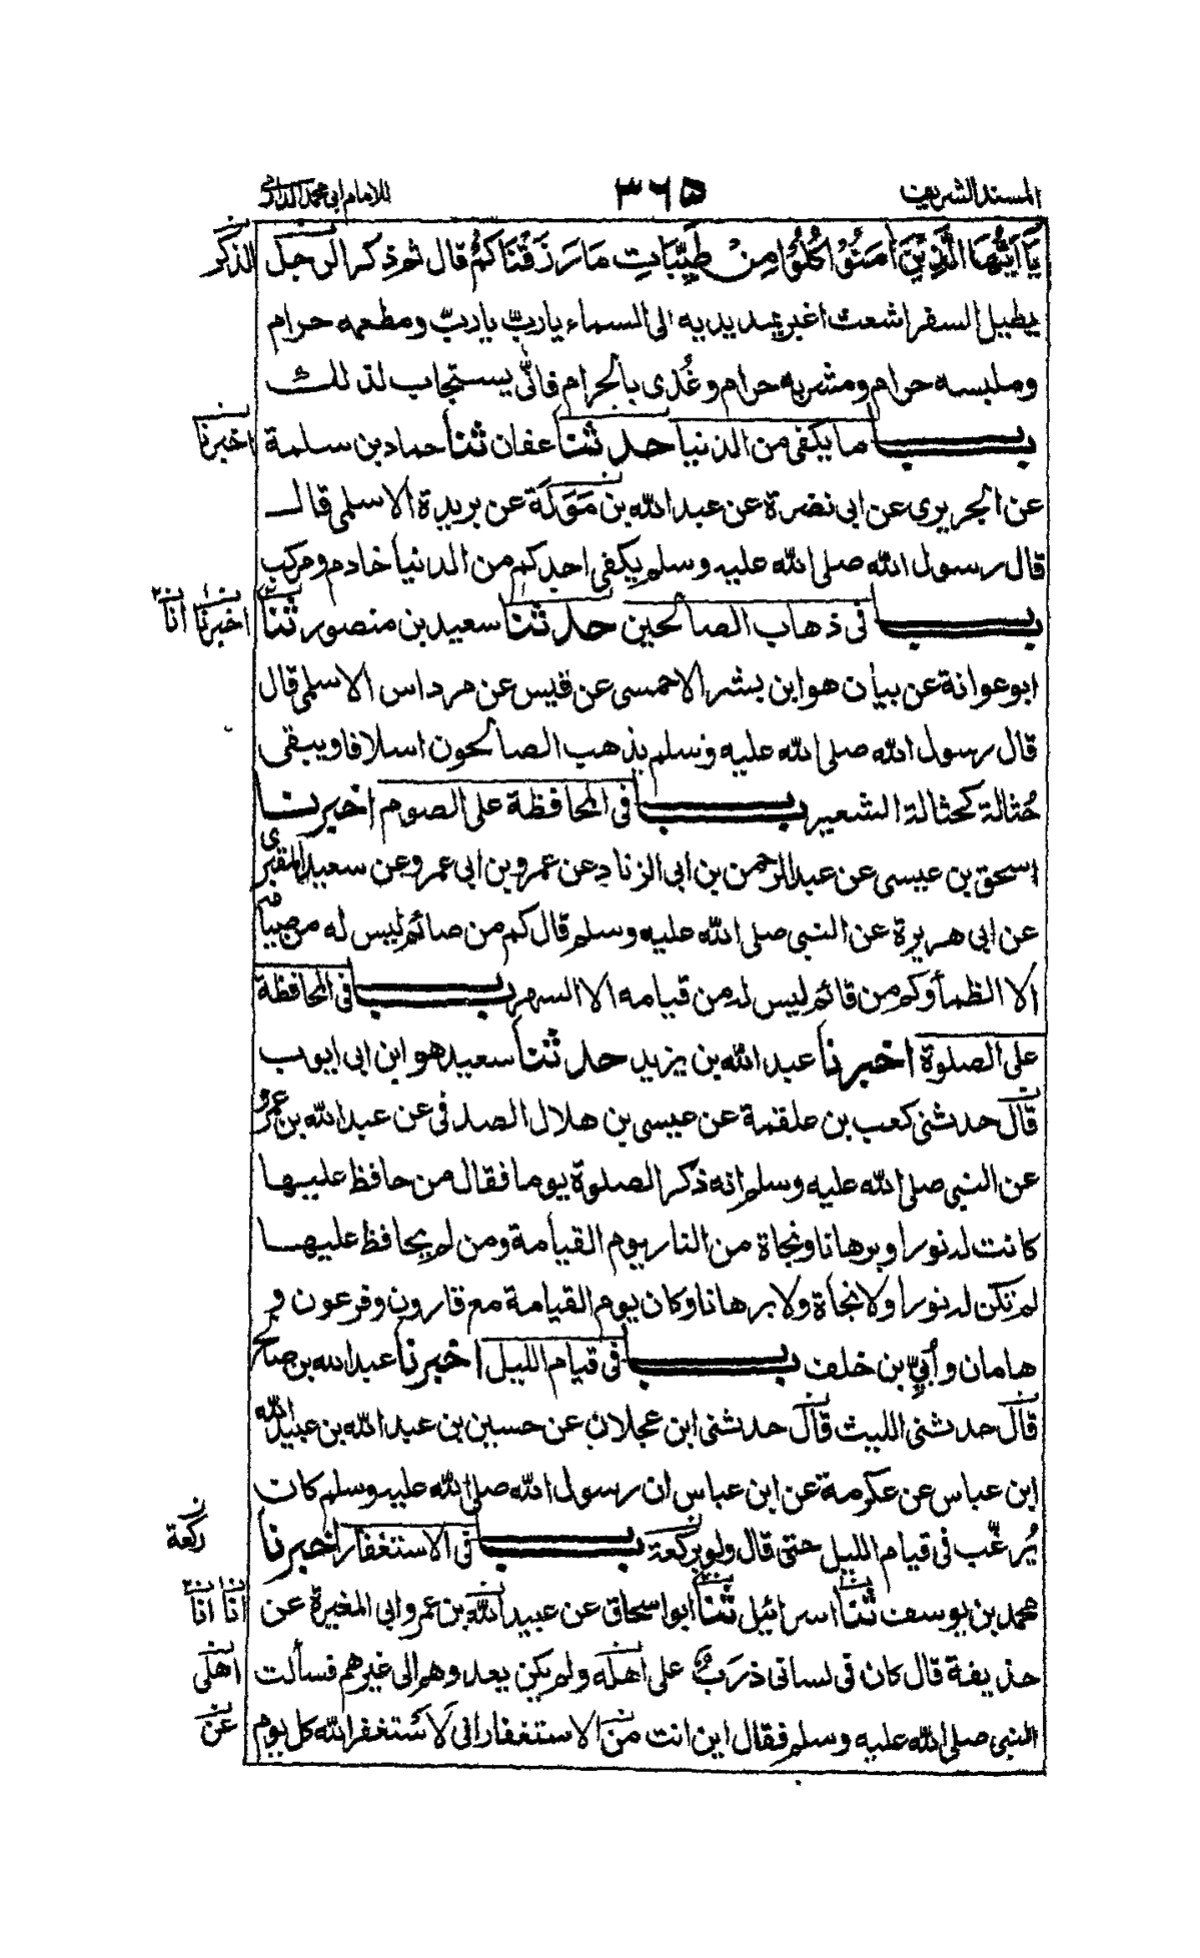 المسند الشريف ٣٦٥ للامام ابي محمد الدارمي
يَا اَيُّهَا الَّذِيْنَ اٰمَنُوْا كُلُوْا مِنْ طَيِّبَاتِ مَا رَزَقْنَاكُمْ قال ثم ذكر الرجل الذكر
يطيل السفر اشعث اغبر يمد يديه الى السماء يا ربّ يا ربّ ومطعمه حرام
وملبسه حرام ومشربه حرام وغُذى بالحرام فانّى يستجاب لذلك
بـــــاب ما يكفى من الدنيا حدثنا عفان ثنا حماد بن سلمة اخبرنا
عن الجريرى عن ابى نضرة عن عبد الله بن مَوَلَة عن بريدة الاسلمى قال
قال رسول الله صلى الله عليه وسلم يكفى احدكم من الدنيا خادم ومركب
بـــــاب فى ذهاب الصالحين حدثنا سعيد بن منصور ثنا اخبرنا انا
ابو عوانة عن بيان هو ابن بشر الاحمسى عن قيس عن مرداس الاسلمى قال
قال رسول الله صلى الله عليه وسلم يذهب الصالحون اسلافا ويبقى
حُثالة كحثالة الشعير بـــــاب فى المحافظة على الصوم اخبرنا
اسحق بن عيسى عن عبد الرحمن بن ابى الزناد عن عمرو بن ابى عمرو عن سعيد المقبرى
عن ابى هريرة عن النبى صلى الله عليه وسلم قال كم من صائم ليس له من صيامه
الا الظمأ وكم من قائم ليس له من قيامه الا السهر بـــــاب فى المحافظة
على الصلوة اخبرنا عبد الله بن يزيد حدثنا سعيد هو ابن ابى ايوب
قال حدثنى كعب بن علقمة عن عيسى بن هلال الصدفى عن عبد الله بن عمرو
عن النبى صلى الله عليه وسلم انه ذكر الصلوة يوما فقال من حافظ عليها
كانت له نورا وبرهانا ونجاة من النار يوم القيامة ومن لم يحافظ عليها
لم تكن له نورا ولا نجاة ولا برهانا وكان يوم القيامة مع قارون وفرعون و
هامان واُبىّ بن خلف بـــــاب فى قيام الليل اخبرنا عبد الله بن صالح
قال حدثنى الليث قال حدثنى ابن عجلان عن حسين بن عبد الله بن عبيد الله
ابن عباس عن عكرمة عن ابن عباس ان رسول الله صلى الله عليه وسلم كان
يُرغّب فى قيام الليل حتى قال ولو بركعة بـــــاب فى الاستغفار اخبرنا ركعة
محمد بن يوسف ثنا اسرائيل ثنا ابو اسحاق عن عبيد الله بن عمرو ابى المغيرة عن انا انا
حذيفة قال كان فى لسانى ذَرَبٌ على اهله ولم يكن يعدوهم الى غيرهم فسألت اهلى
النبى صلى الله عليه وسلم فقال اين انت من الاستغفار انى لَاَستغفر الله كل يوم عن